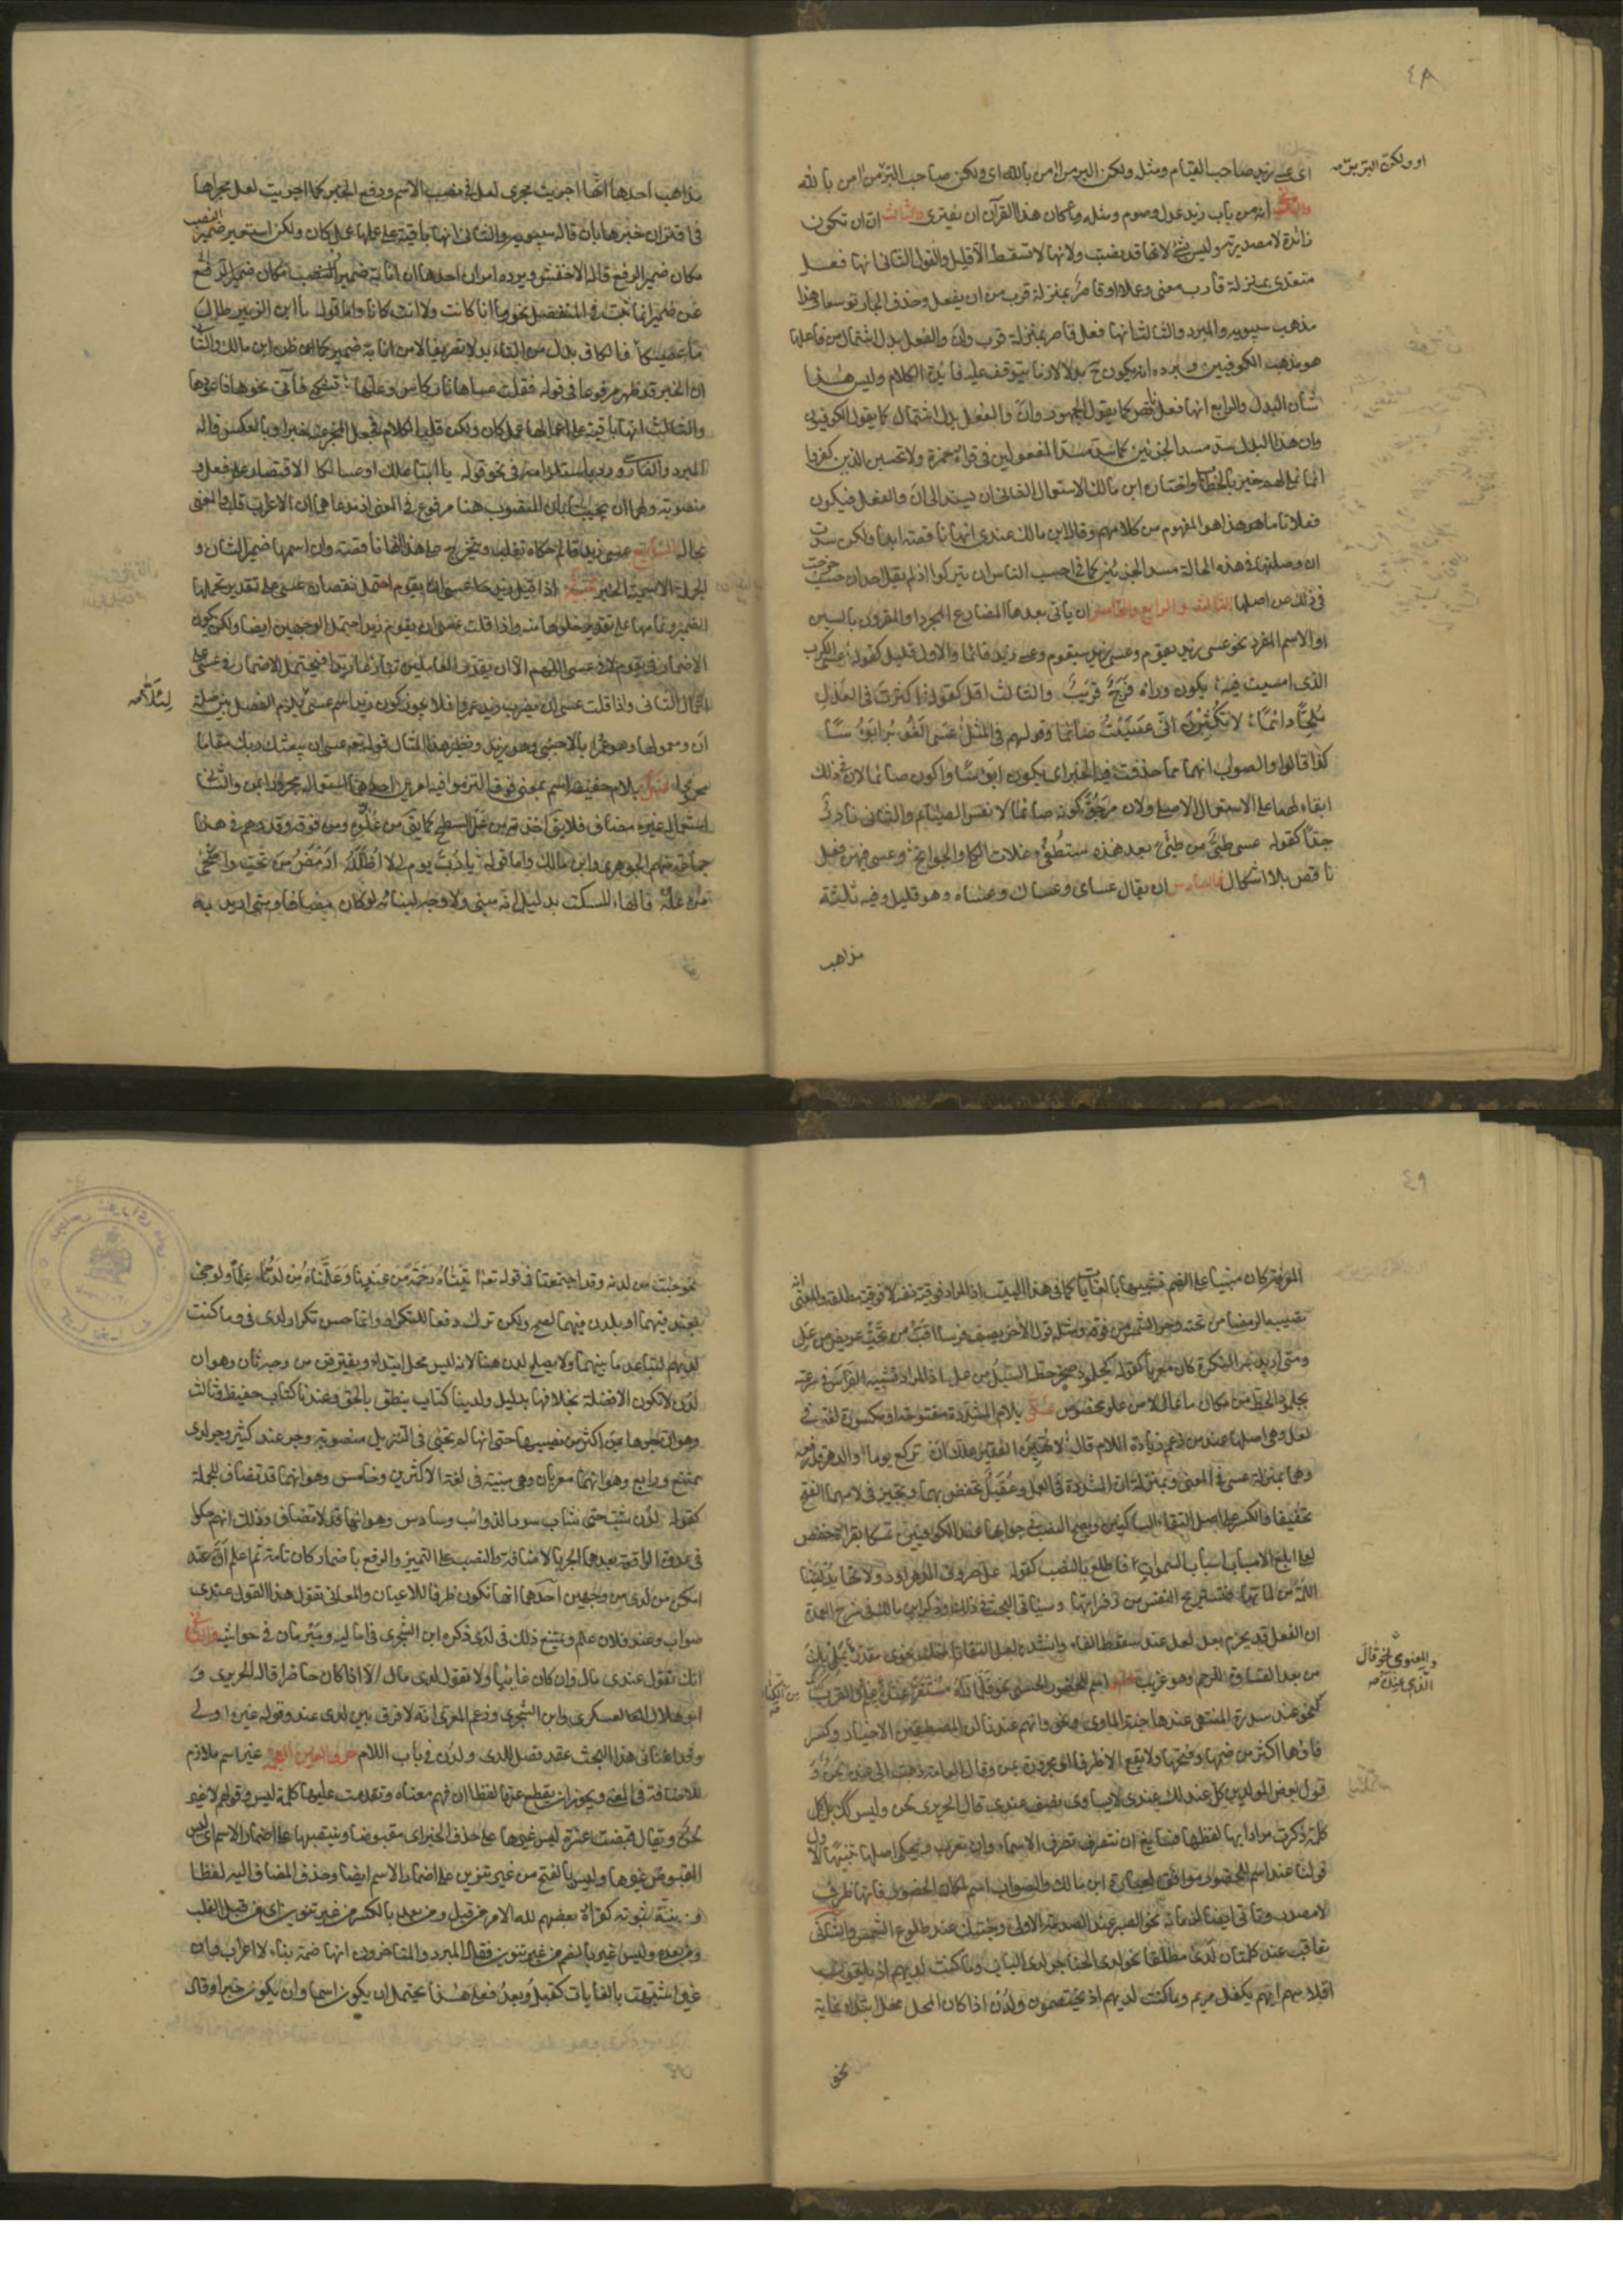 ٤٨
او ولكن البر يرّ
اى عسى زيد صاحب القيام ومثله ولكن البر من امن بالله اى ولكن صاحب البر من امن بالله
انه من باب زيد عدل وصوم ومثله وما كان هذا القرآن ان يفترى والثالث ان ان تكون
زائدة لا مصدرية وليس بشئ لانها قد نصبت ولانها لا تسقط الا قليلا والقول الثانى انها فعل
متعدى بمنزلة قارب معنى وعملا او قاصر بمنزلة قرب من ان يفعل وحذف الجار توسعا وهذا
مذهب سيبويه والمبرد والثالث انها فعل قاصر بمنزلة قرب وان والفعل بدل اشتمال من فاعلها
هو مذهب الكوفيين ويرده انه يكون ح بدلا لازما يتوقف عليه فايدة الكلام وليس هذا
شأن البدل والرابع انها فعل ناقص كما يقول الجمهور وان والفعل بدل اشتمال كما يقول الكوفيون
وان هذا البدل سد مسد الجزئين كما سد مسد المفعولين فى قراءة حمزة ولا تحسبن الذين كفروا
انما نملى لهم خير بالخطاب واختاره ابن مالك الاستعمال الثانى ان يسند الى ان والفعل فيكون
فعلا تاما هو هذا هو المفهوم من كلامهم وقال ابن مالك عندى انها ناقصة ابدا ولكن سدت
ان وصلتها فى هذه الحالة مسد الجزئين كما فى احسب الناس ان يتركوا اذ لم يقل احد ان حسب خرجت
فى ذلك عن اصلها الثالث والرابع والخامس ان يأتى بعدها المضارع المجرد او المقرون بالسين
او الاسم المفرد نحو عسى زيد يقوم وعسى زيد سيقوم وعسى زيد قائما والاول قليل كقوله عسى الكرب
الذى امسيت فيه يكون وراءه فرج قريب والثالث اقل كقوله اكثرت فى العذل
ملحّا دائما لا تكثرن انى عسيت صائما وقولهم فى المثل عسى الغوير ابؤسا
كذا قالوا والصواب انهما مما حذفت فيه الخبر اى يكون ابؤسا واكون صائما لان فى ذلك
ابقاء لهما على الاستعمال الاصلى ولان مرجو كونه صائما لا نفس الصائم والثانى نادر
جدّا كقوله عسى طيّئ من طيّئ بعد هذه ستطفئ غلات الكلى والجوانح وعسى فيهن فعل
ناقص بلا اشكال السادس ان يقال عساى وعساك وعساه وهو قليل وفيه ثلثة
مذاهب
مذاهب احدها انها اجريت مجرى لعل فى نصب الاسم ورفع الخبر كما اجريت لعل مجراها
فى اقتران خبرها بان قاله سيبويه والثانى انها باقية على عملها عمل كان ولكن استعير ضمير النصب
مكان ضمير الرفع قاله الاخفش ويرده امران احدهما ان انابة ضمير النصب مكان ضمير الرفع
عن ضمير انما ثبت فى المنفصل نحو ما انا كانت ولا انت كانا واما قوله يا ابن الزبير طال
ما عصيكا فالكاف بدل من التاء بدلا تصريفا لا من انابة ضمير كما ظن ابن مالك والثانى
ان الخبر قد ظهر مرفوعا فى قوله فقلت عساها نار كاس وعلها تشكى فآتى نحوها فاعودها
والثالث انها باقية على اعمالها عمل كان ولكن قلب الكلام فجعل المخبر عنه خبرا وبالعكس قاله
المبرد والفارسى ورد باستلزامه فى نحو قوله يا ابتا علك او عساكا الاقتصار على فعل و
منصوبه ولهما ان يجيبا بان المنصوب هنا مرفوع فى المعنى اذ مدعاهما ان الاعراب قلب والمعنى
بحاله السابع عسى زيد قائم حكاه ثعلب ويتخرج على هذا انها ناقصة وان اسمها ضمير الشان و
الجملة الاسمية الخبر تنبيه اذا قيل زيد عسى ان يقوم احتمل نقصان عسى على تقدير تحملها
الضمير وتمامها على تقدير خلوها منه واذا قلت عسى ان يقوم زيد احتمل الوجهين ايضا ولكن يكون
الاضمار فى يقوم لا فى عسى اللهم الا ان يقدر العاملين تنازعا زيدا فيحتمل الاضمار فى عسى على
اعمال الثانى واذا قلت عسى ان يضرب زيد عمرا فلا يجوز كون زيد اسم عسى لئلا يلزم الفصل بين صلة
ان ومعمولها وهو عمرا بالاجنبى وهو زيد ونظير هذا المثال قوله تعم عسى ان يبعثك ربك مقاما
محمودا عل بلام خفيفة اسم بمعنى فوق التزموا فيه امرين احدهما استعماله مجرورا بمن والثانى
استعماله غير مضاف فلا يقال اخذته من عل السطح كما يقال من علوه ومن فوقه وقد وهم فى هذا
جماعة منهم الجوهرى وابن مالك واما قوله يا رب يوم لى لا اظلله ارمض من تحت واضحى
من عله فالهاء للسكت بدليل انه مبنى ولا وجه لبنائه لو كان مضافا ومتى اريد به
٤٩
المعرفة كان مبنيا على الضم تشبيها بالغايات كما فى هذا البيت اذ المراد فوقية نفسه لا فوقية مطلقة والمعنى انه
تصيبه الرمضا من تحته وحر الشمس من فوقه ومثله قول الاخر يصف فرسا اقب من تحت عريض من عل
ومتى اريد به النكرة كان معربا كقوله كجلمود صخر حطه السيل من عل اذ المراد تشبيه الفرس فى سرعته
بجلمود انحط من مكان ما عال لا من علو مخصوص عل بلام مشددة مفتوحة او مكسورة لغة فى
لعل وهى اصلها عند من زعم زيادة اللام قال لا تهين الفقير علك ان تركع يوما والدهر قد رفعه
وهما بمنزلة عسى فى المعنى وبمنزلة ان المشددة فى العمل وعقيل تخفض بهما وتجيز فى لامهما الفتح
تخفيفا والكسر على اصل التقاء الساكنين ويصح النصب فى جوابهما عند الكوفيين تمسكا بقراءة حفص
لعلى ابلغ الاسباب اسباب السموات فاطلع بالنصب كقوله عل صروف الدهر او دولاتها يدلننا
اللمة من لماتها فتستريح النفس من زفراتها وسياتى البحث فى ذلك وذكر ابن مالك فى شرح العمدة
ان الفعل قد يجزم بعد لعل عند سقوط الفاء وانشد لعل التفاتا منك نحوى مقدر يمل بك
من بعد القساوة للرحم وهو غريب عند اسم للحضور الحسى نحو فلما راه مستقرا عنده وللقرب
والمعنوى نحو قال الذى عنده
كذلك نحو عند سدرة المنتهى عندها جنة الماوى ونحو وانهم عندنا لمن المصطفين الاخيار وكسر
فاؤها اكثر من ضمها وفتحها ولا يقع الا ظرفا او مجرورة بمن وقول العامة ذهبت الى عنده لحن و
قول بعض المولدين كل عند لك عندى لا يساوى نصف عندى قال الحريرى لحن وليس كك بل كل
كلمة ذكرت مرادا بها لفظها فسايغ ان تتصرف تصرف الاسماء وان تعرب ويحكى اصلها تنبيهان الاول
قولنا عند اسم للحضور موافق لعبارة ابن مالك والصواب اسم لمكان الحضور فانها ظرف
لا مصدر وتاتى ايضا لزمانه نحو الصبر عند الصدمة الاولى وجئتك عند طلوع الشمس والثانى
تعاقب عند كلمتان لدى مطلقا نحو لدى الحناجر لدى الباب وما كنت لديهم اذ يلقون
اقلامهم ايهم يكفل مريم وما كنت لديهم اذ يختصمون ولدن اذا كان المحل محل ابتداء غاية
نحو
نحو جئت من لدنه وقد اجتمعتا فى قوله تعم آتيناه رحمة من عندنا وعلمناه من لدنا علما ولو جئ
بعند فيهما او بلدن فيهما لصح ولكن ترك دفعا للتكرار وانما حسن تكرار لدى فى وما كنت
لديهم لتباعد ما بينهما ولا يصلح لدن هنا لانه ليس محل ابتداء ويفترقن من وجه ثان وهو ان
لدن لا تكون الا فضلة بخلافهما بدليل ولدينا كتاب ينطق بالحق وعندنا كتاب حفيظ وثالث
وهو ان جرها بمن اكثر من نصبها حتى انها لم تجئ فى التنزيل منصوبة وجر عند كثير وجر لدى
ممتنع ورابع وهو انهما معربان وهى مبنية فى لغة الاكثرين وخامس وهو انها قد تضاف للجملة
كقوله لدن شب حتى شاب سود الذوائب وسادس وهو انها قد لا تضاف وذلك انهم حكوا
فى غدوة الواقعة بعدها الجر بالاضافة والنصب على التمييز والرفع باضمار كان تامة ثم اعلم ان عند
امكن من لدى من وجهين احدهما انها تكون ظرفا للاعيان والمعانى تقول هذا القول عندى
صواب وعند فلان علم ويمتنع ذلك فى لدى ذكره ابن الشجرى فى اماليه ومبرمان فى حواشيه والثانى
انك تقول عندى مال وان كان غائبا ولا تقول لدى مال الا اذا كان حاضرا قاله الحريرى و
ابو هلال العسكرى وابن الشجرى وزعم المعرى انه لا فرق بين لدى وعند وقول غيره اولى
وقد اغنانى هذا البحث عن عقد فصل للدى ولدن فى باب اللام حرف الغين المعجمة غير اسم ملازم
للاضافة فى المعنى ويجوز ان يقطع عنها لفظا ان فهم معناه وتقدمت عليها كلمة ليس وقولهم لا غير
لحن ويقال قبضت عشرة ليس غيرها على حذف الخبر اى مقبوضا وبنصبها على اضمار الاسم اى ليس
المقبوض غيرها وليس غير بالفتح من غير تنوين على اضمار الاسم ايضا وحذف المضاف اليه لفظا
ونية ثبوته كقراءة بعضهم لله الامر من قبل ومن بعد بالكسر من غير تنوين اى من قبل الغلب
ومن بعده وليس غير بالضم من غير تنوين فقال المبرد والمتاخرون انها ضمة بناء لا اعراب وان
غير شبهت بالغايات كقبل وبعد فعلى هذا يحتمل ان يكون اسما وان يكون خبرا وقال